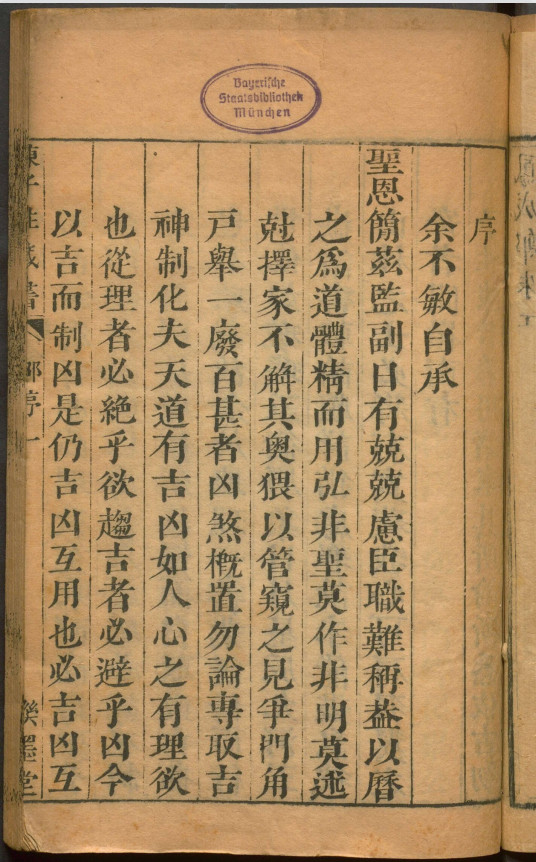 Bayerische
Staatsbibliothek
München
序
余不敏自承
聖恩簡茲監副日有兢兢慮臣職難稱葢以曆
之爲道體精而用弘非聖莫作非明莫述
尅擇家不觧其奥猥以管窺之見爭門角
戸舉一廢百甚者凶煞槪置勿論專取吉
神制化夫天道有吉凶如人心之有理欲
也從理者必絶乎欲趨吉者必避乎凶今
以吉而制凶是仍吉凶互用也必吉凶互
藏書 序一
墨堂